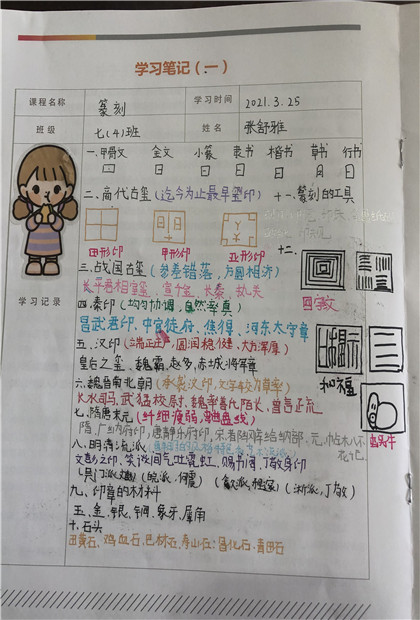 学习笔记（一）
课程名称 篆刻 学习时间 2021.3.25
班级 七(4)班 姓名 张舒雅
学习记录
一、甲骨文 金文 小篆 隶书 楷书 草书 行书
日 日 日 日 日 日 日
二、商代古玺（迄今为止最早玺印）
田形印 甲形印 亚形印
十一、篆刻的工具
十二、
回字纹
和福
三、战国古玺（参差错落，方圆相济）
长平君相室玺、富千金、长泰、执关
四、秦印（均匀协调，自然率真）
昌武君印、中官徒府、焦得、河东太守章
五、汉印（端正庄，圆润稳健，大方深厚）
皇后之玺、魏霸、赵多、赤城将军章
六、魏晋南北朝（承袭汉印，文字较为草率）
七、隋唐宋元（纤细瘦弱，
八、明清流派
文彭之印、笑谈间气吐霓虹、赐书阁、丁敬身印
九、印章的材料
五、金、银、铜、象牙、犀角
十、石头
田黄石、鸡血石、巴林石、寿山石、昌化石、青田石